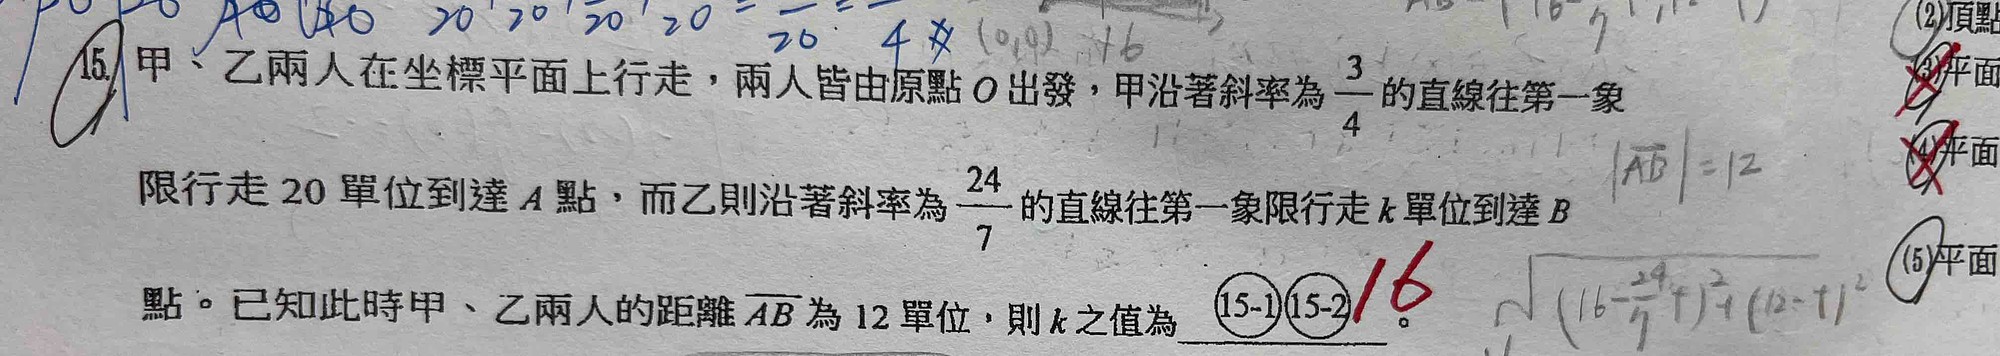 20 20 20 20 = 20 = 4
(0,9) 16
(2)頂點
15. 甲、乙兩人在坐標平面上行走,兩人皆由原點 O 出發,甲沿著斜率為 3/4 的直線往第一象
(3)平面
|AB| = 12
(4)平面
限行走 20 單位到達 A 點,而乙則沿著斜率為 24/7 的直線往第一象限行走 k 單位到達 B
(5)平面
點。已知此時甲、乙兩人的距離 AB 為 12 單位,則 k 之值為 (15-1)(15-2) 16 。
√(16-24/7 t)²+(12-t)²